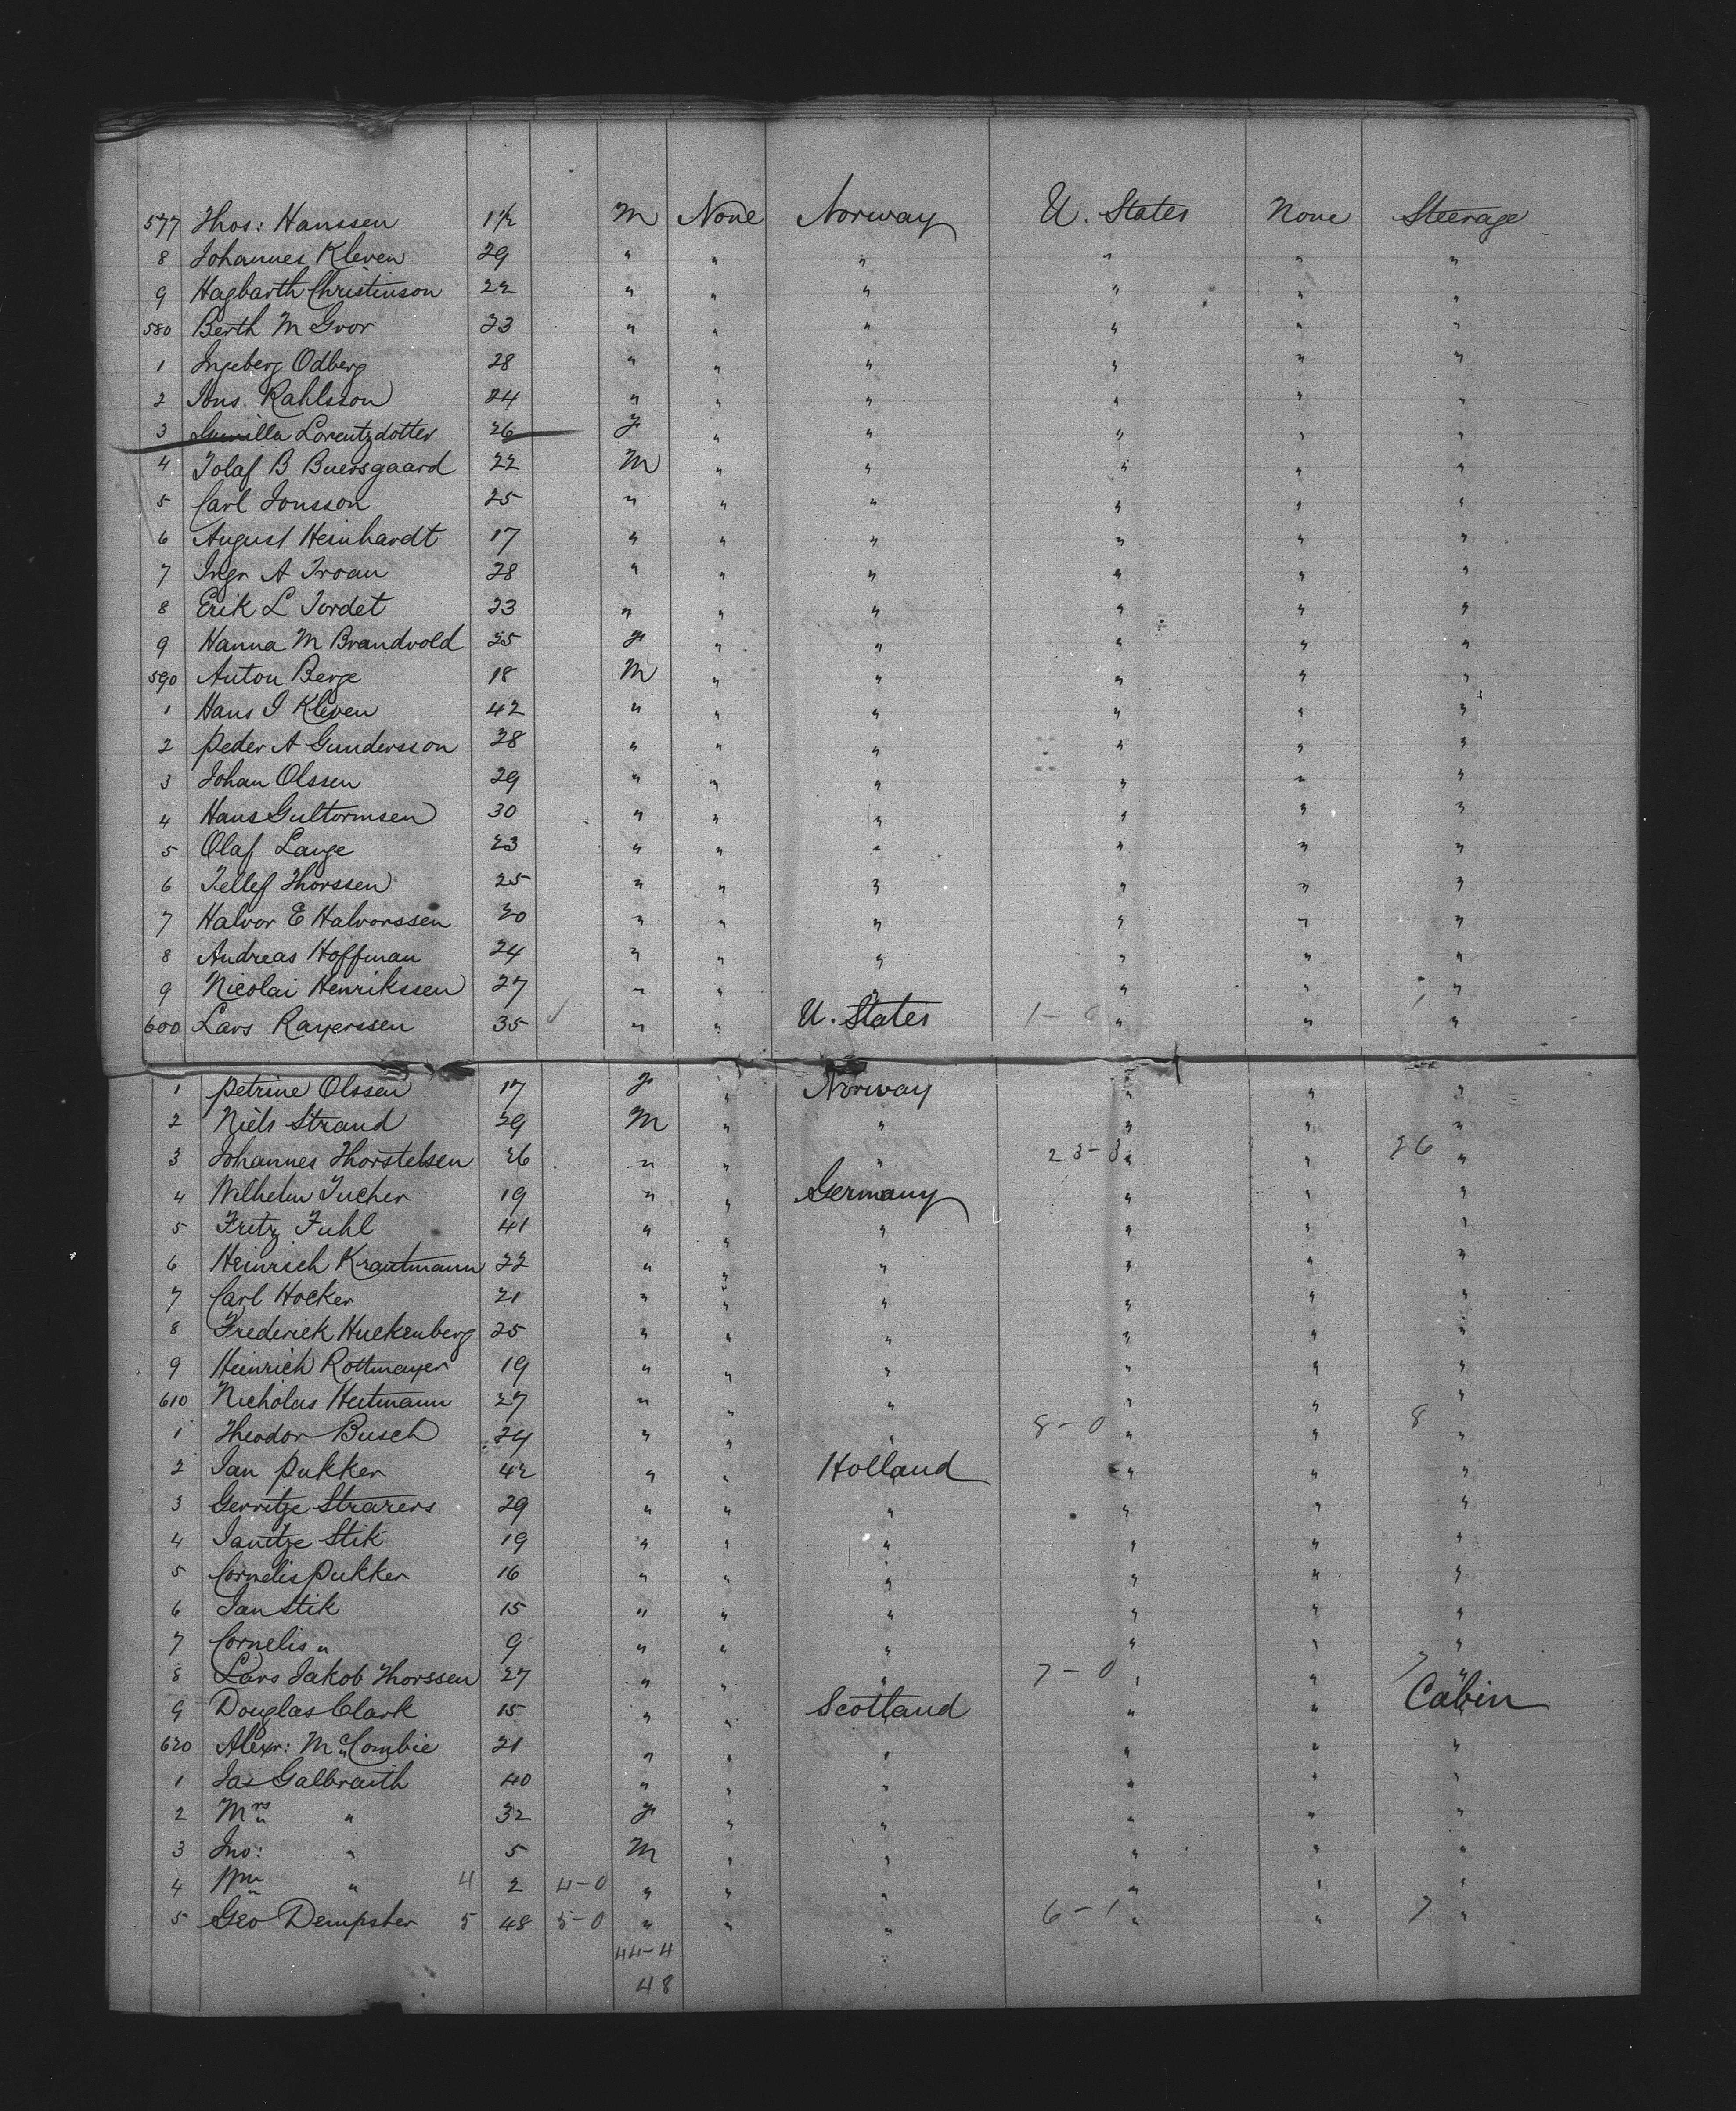 577 Thos: Hanssen 1½ M None Norway U. States None Steerage
8 Johannes Kleven 29 " " " " " "
9 Hagbarth Christinson 22 " " " " " "
580 Berth M Gvor 23 " " " " " "
1 Ingeberg Odberg 28 " " " " " "
2 Jons. Rahlsson 24 " " " " " "
3 Gunilla Lorentzdotter 26 F " " " " "
4 Tolaf B Buersgaard 22 M " " " " "
5 Carl Jonsson 25 " " " " " "
6 August Heinhardt 17 " " " " " "
7 Ingr A Troan 28 " " " " " "
8 Erik L Tordet 23 " " " " " "
9 Hanna M Brandvold 25 F " " " " "
590 Anton Berge 18 M " " " " "
1 Hans I Kleven 42 " " " " " "
2 Peder A Gundersson 28 " " " " " "
3 Johan Olssen 29 " " " " " "
4 Hans Gultormsen 30 " " " " " "
5 Olaf Lange 23 " " " " " "
6 Tellef Thorssen 25 " " " " " "
7 Halvor E Halvorssen 20 " " " " " "
8 Andreas Hoffman 24 " " " " " "
9 Nicolai Henrikssen 27 " " " " " "
600 Lars Rayerssen 35 " " U. States 1-0 " " "
1 Petrine Olssen 17 F " Norway " " "
2 Niels Strand 29 M " " " " "
3 Johannes Thorstelsen 26 " " " 23-3 " " 26 "
4 Wilhelm Tucher 19 " " Germany " " "
5 Fritz Fuhl 41 " " " " " "
6 Heinrich Krautmann 22 " " " " " "
7 Carl Hocker 21 " " " " " "
8 Frederick Huckenberg 25 " " " " " "
9 Heinrich Rottmayer 19 " " " " " "
610 Nicholas Heitmann 27 " " " " " "
1 Theodor Busch 24 " " " 8-0 " " 8 "
2 Jan Pukker 42 " " Holland " " "
3 Gerritze Strarers 29 " " " " " "
4 Janitze Stik 19 " " " " " "
5 Cornelis Pukker 16 " " " " " "
6 Jan Stik 15 " " " " " "
7 Cornelis " 9 " " " " " "
8 Lars Jakob Thorssen 27 " " " 7-0 " " 7 "
9 Douglas Clark 15 " " Scotland " " Cabin
620 Alexr: McCombie 21 " " " " " "
1 Jas Galbraith 40 " " " " " "
2 Mrs " 32 F " " " " "
3 Jno: " 5 M " " " " "
4 Wm " 4 2 4-0 " " " " " "
5 Geo Dempster 5 48 5-0 " " " 6-1 " " 7 "
44-4
48